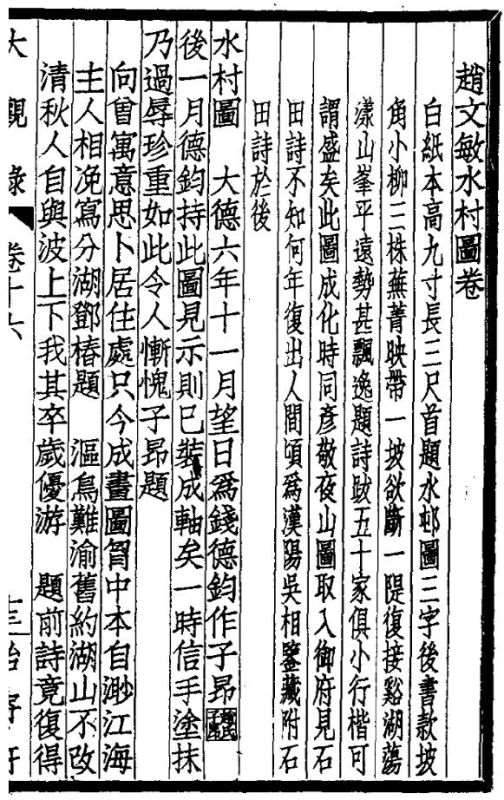 趙文敏水村圖卷
白紙本高九寸長三尺首題水邨圖三字後書款坡
角小柳三株蕪菁映帶一坡欲斷一隄復接谿湖蕩
漾山峯平遠勢甚飄逸題詩跋五十家俱小行楷可
謂盛矣此圖成化時同彥敬夜山圖取入御府見石
田詩不知何年復出人間頃爲漢陽吳相鑒藏附石
田詩於後
水村圖　大德六年十一月望日爲錢德鈞作子昂
後一月德鈞持此圖見示則已裝成軸矣一時信手塗抹
乃過辱珍重如此令人慚愧子昂題
向曾寓意思卜居住處只今成畫圖胷中本自渺江海
主人相浼寫分湖鄧椿題　漚鳥難渝舊約湖山不改
清秋人自與波上下我其卒歲優游　題前詩竟復得
大觀錄　卷十六